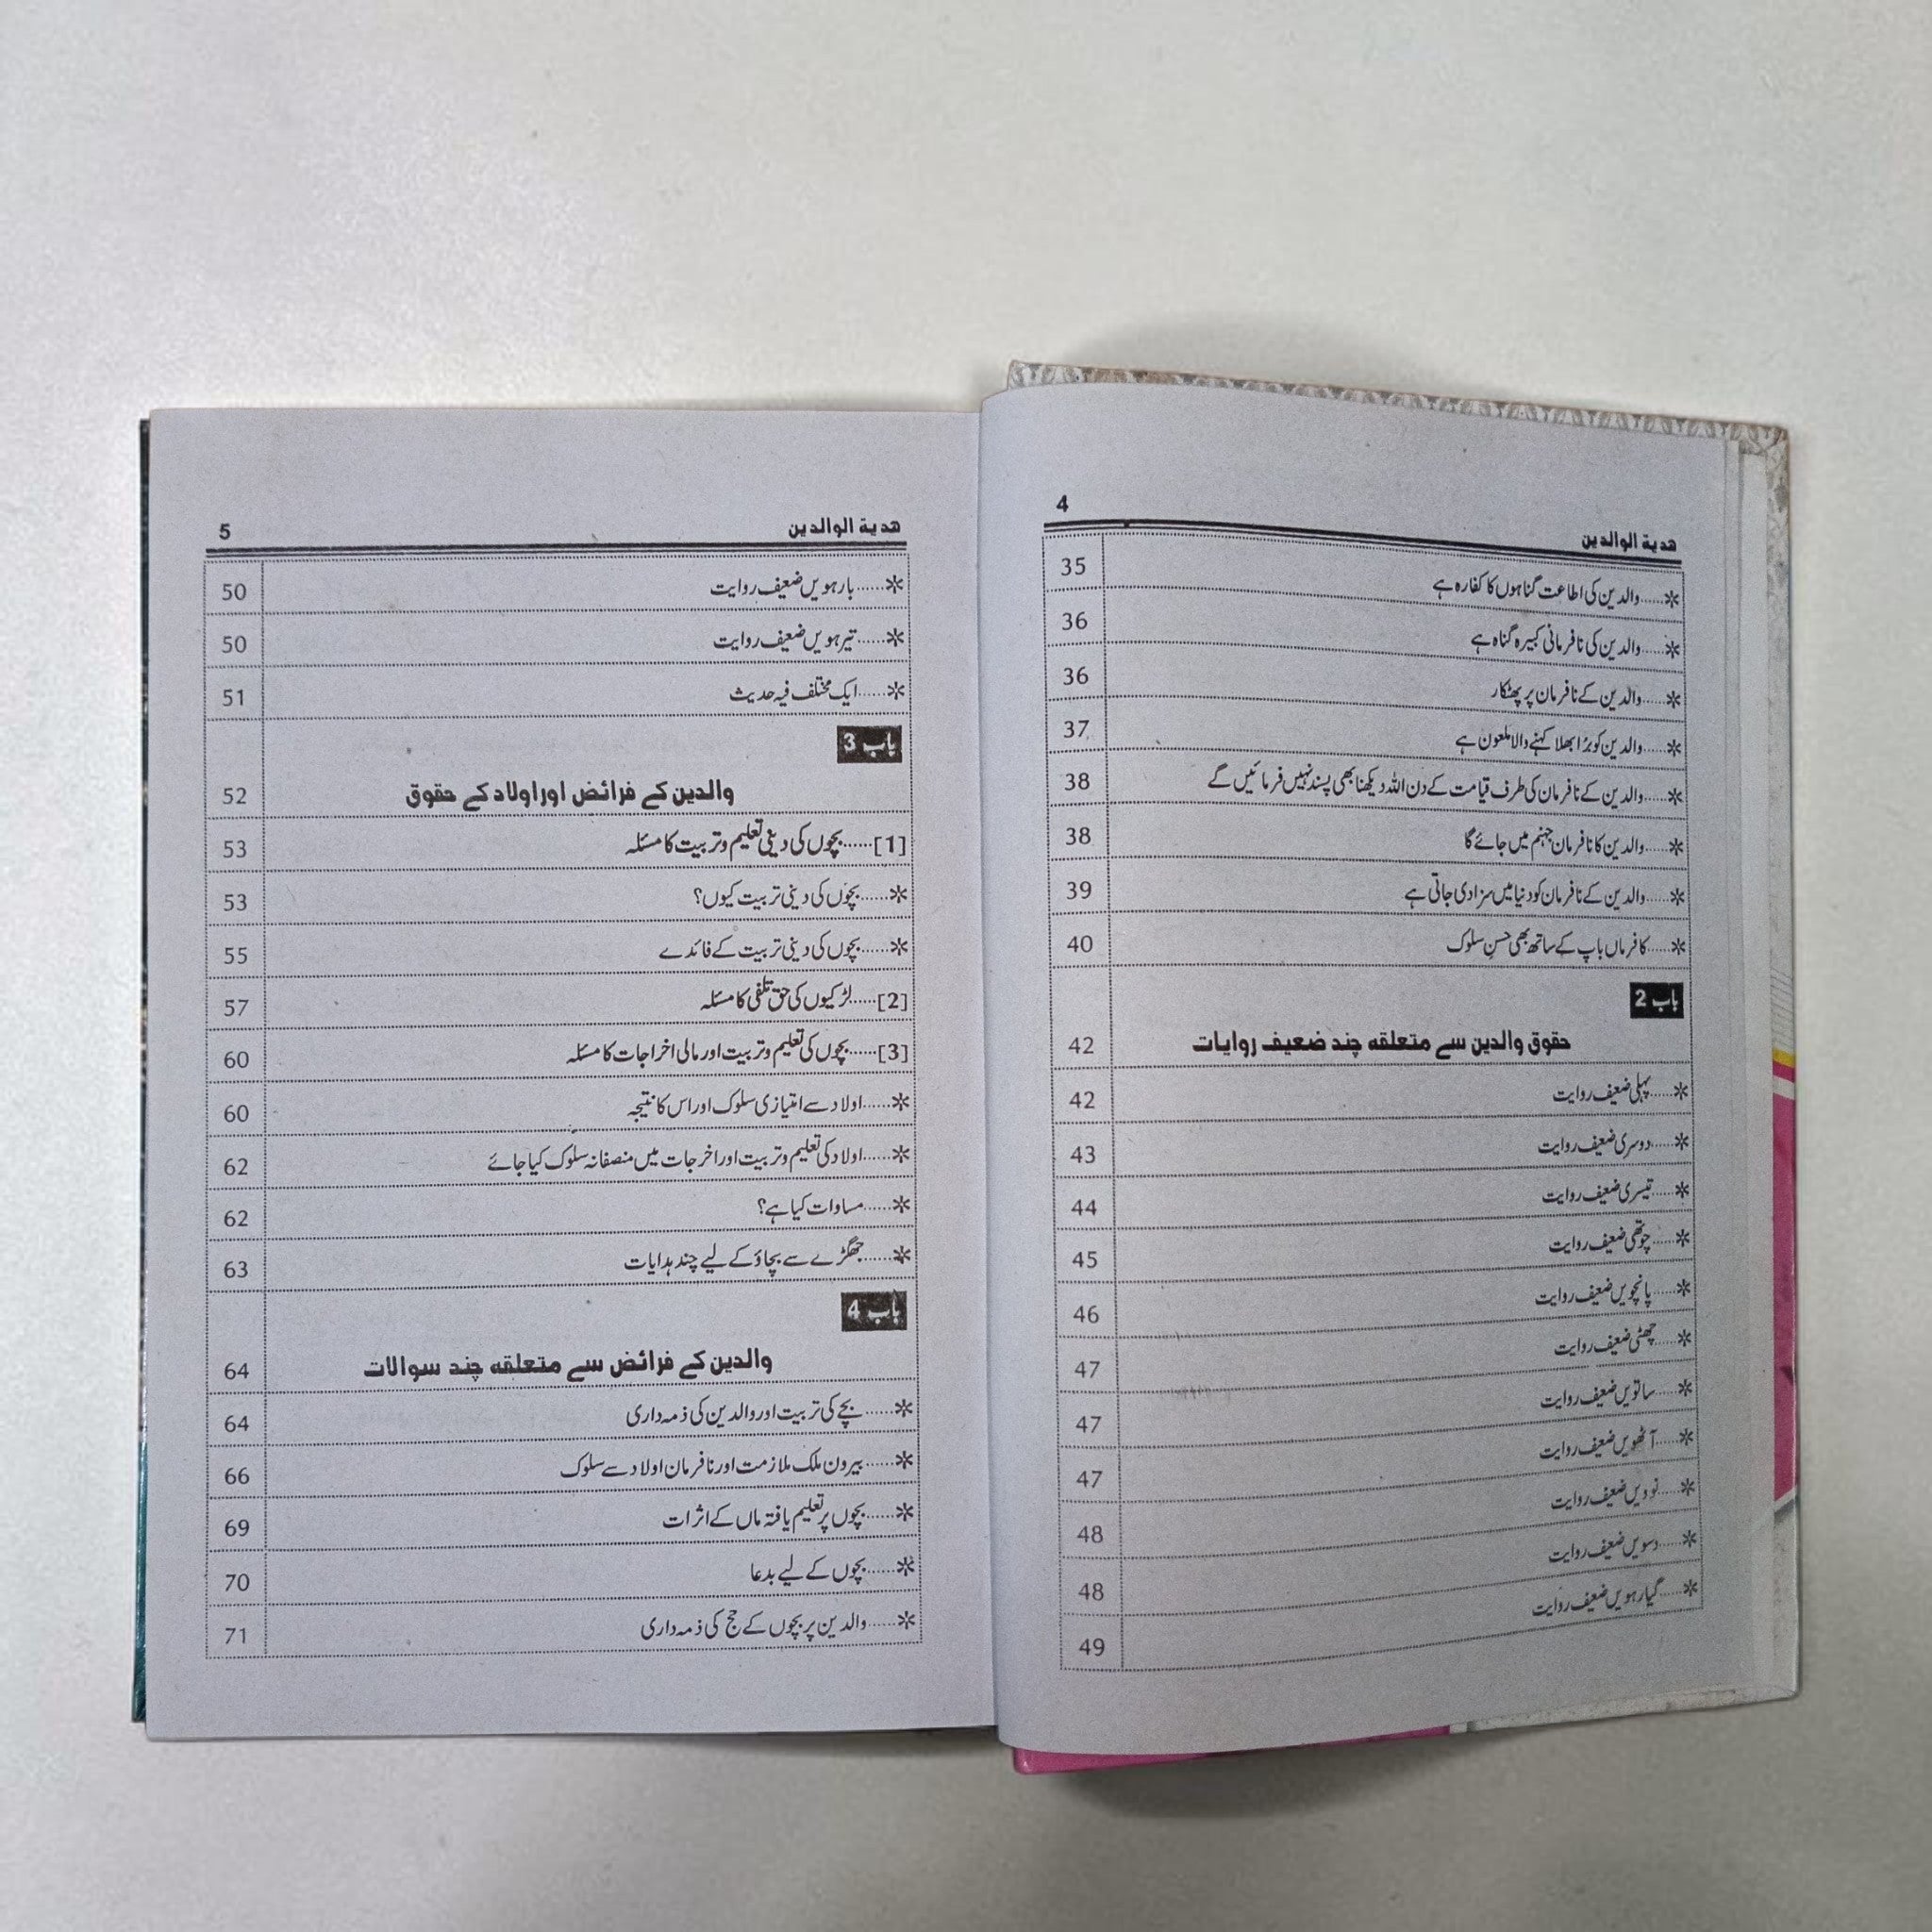 4
هدية الوالدين
*.....والدین کی اطاعت گناہوں کا کفارہ ہے 35
*.....والدین کی نافرمانی کبیرہ گناہ ہے 36
*.....والدین کے نافرمان پر پھٹکار 36
*.....والدین کو بُرا بھلا کہنے والا ملعون ہے 37
*.....والدین کے نافرمان کی طرف قیامت کے دن اللہ دیکھنا بھی پسند نہیں فرمائیں گے 38
*.....والدین کا نافرمان جہنم میں جائے گا 38
*.....والدین کے نافرمان کو دنیا میں سزا دی جاتی ہے 39
*.....کافر ماں باپ کے ساتھ بھی حسنِ سلوک 40
باب 2
حقوق والدین سے متعلقہ چند ضعیف روایات 42
*.....پہلی ضعیف روایت 42
*.....دوسری ضعیف روایت 43
*.....تیسری ضعیف روایت 44
*.....چوتھی ضعیف روایت 45
*.....پانچویں ضعیف روایت 46
*.....چھٹی ضعیف روایت 47
*.....ساتویں ضعیف روایت 47
*.....آٹھویں ضعیف روایت 47
*.....نوویں ضعیف روایت 48
*.....دسویں ضعیف روایت 48
*.....گیارہویں ضعیف روایت 49
5
هدية الوالدين
*.....بارہویں ضعیف روایت 50
*.....تیرہویں ضعیف روایت 50
*.....ایک مختلف فیہ حدیث 51
باب 3
والدین کے فرائض اور اولاد کے حقوق 52
[1].....بچوں کی دینی تعلیم و تربیت کا مسئلہ 53
*.....بچوں کی دینی تربیت کیوں؟ 53
*.....بچوں کی دینی تربیت کے فائدے 55
[2].....لڑکیوں کی حق تلفی کا مسئلہ 57
[3].....بچوں کی تعلیم و تربیت اور مالی اخراجات کا مسئلہ 60
*.....اولاد سے امتیازی سلوک اور اس کا نتیجہ 60
*.....اولاد کی تعلیم و تربیت اور اخرجات میں منصفانہ سلوک کیا جائے 62
*.....مساوات کیا ہے؟ 62
*.....جھگڑے سے بچاؤ کے لیے چند ہدایات 63
باب 4
والدین کے فرائض سے متعلقہ چند سوالات 64
*.....بچے کی تربیت اور والدین کی ذمہ داری 64
*.....بیرون ملک ملازمت اور نافرمان اولاد سے سلوک 66
*.....بچوں پر تعلیم یافتہ ماں کے اثرات 69
*.....بچوں کے لیے بددعا 70
*.....والدین پر بچوں کے حج کی ذمہ داری 71